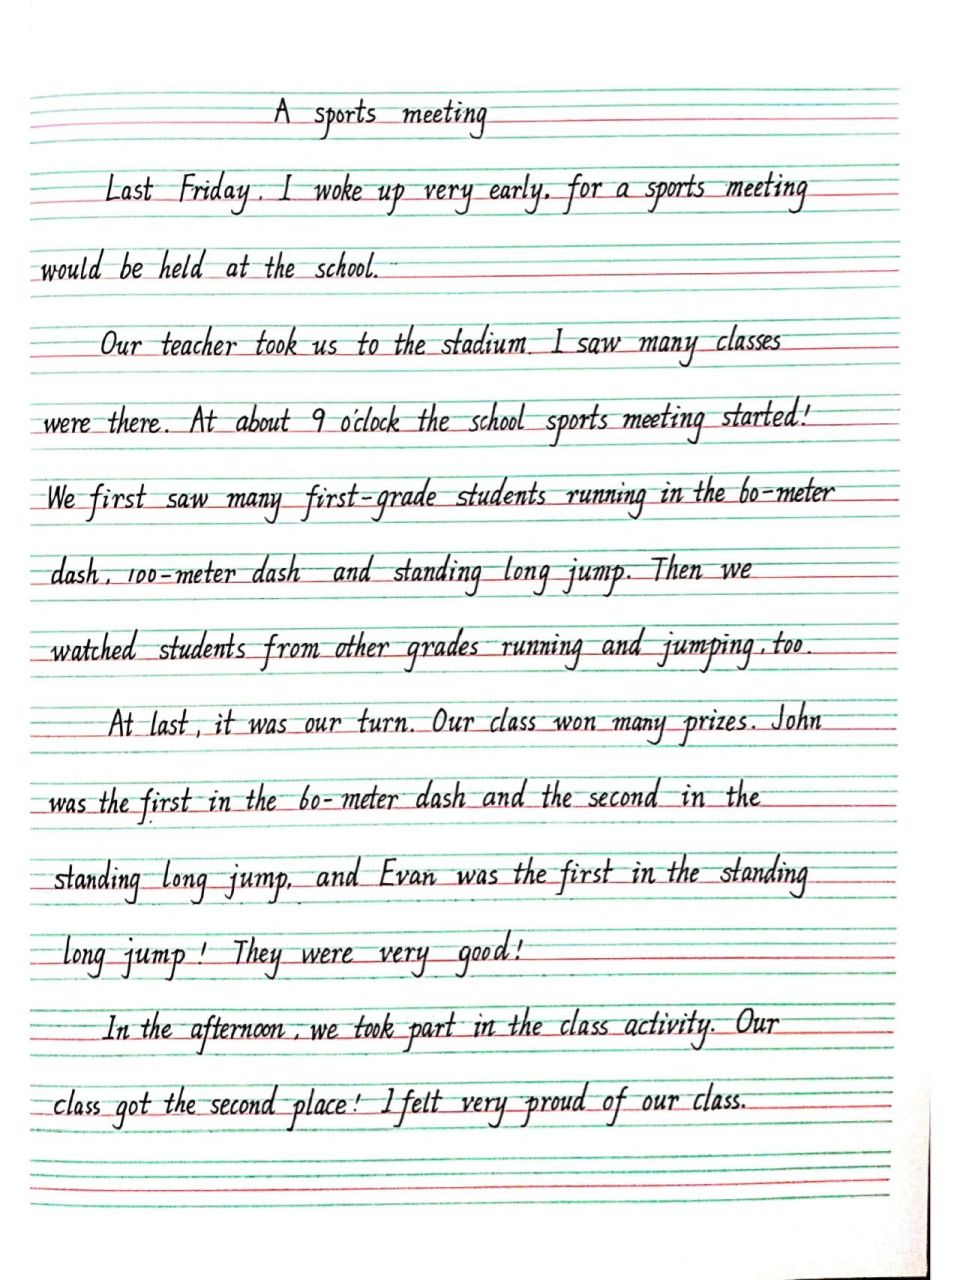 A sports meeting
Last Friday, I woke up very early, for a sports meeting
would be held at the school.
Our teacher took us to the stadium. I saw many classes
were there. At about 9 o'clock the school sports meeting started!
We first saw many first-grade students running in the 60-meter
dash, 100-meter dash and standing long jump. Then we
watched students from other grades running and jumping, too.
At last, it was our turn. Our class won many prizes. John
was the first in the 60-meter dash and the second in the
standing long jump, and Evan was the first in the standing
long jump! They were very good!
In the afternoon, we took part in the class activity. Our
class got the second place! I felt very proud of our class.